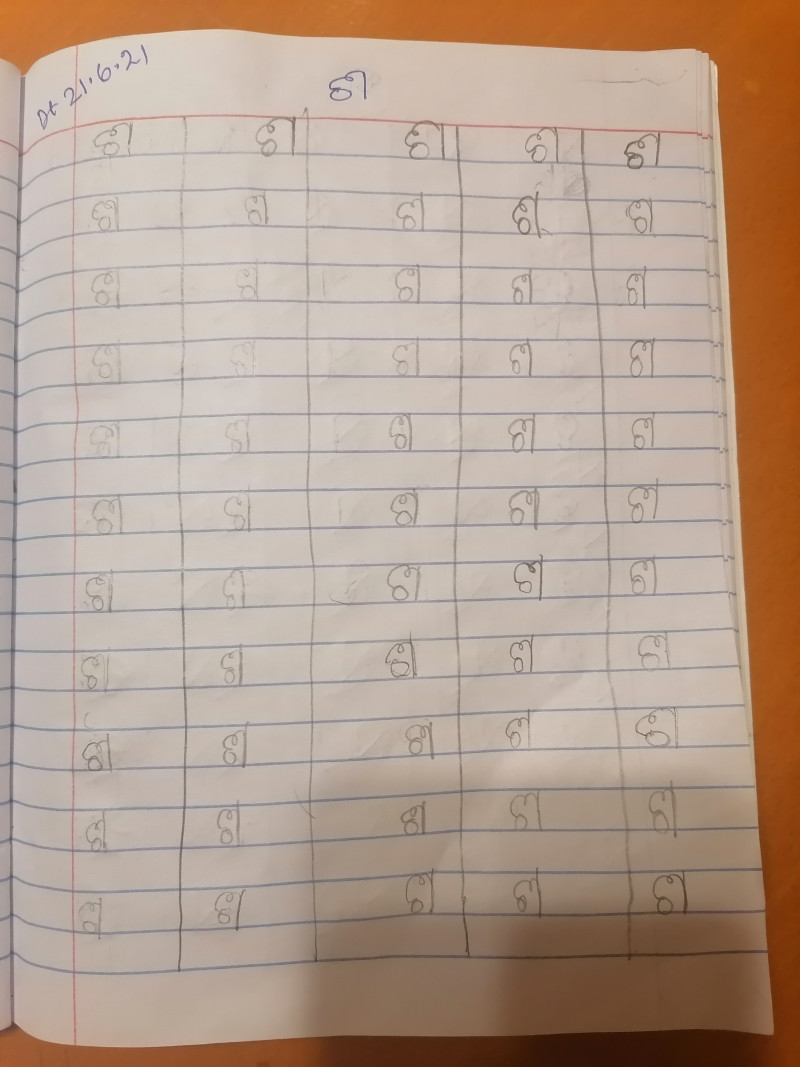 Dt 21.6.21
ଶ
ଶ ଶ ଶ ଶ ଶ
ଶ ଶ ଶ ଶ ଶ
ଶ ଶ ଶ ଶ ଶ
ଶ ଶ ଶ ଶ ଶ
ଶ ଶ ଶ ଶ ଶ
ଶ ଶ ଶ ଶ ଶ
ଶ ଶ ଶ ଶ ଶ
ଶ ଶ ଶ ଶ ଶ
ଶ ଶ ଶ ଶ ଶ
ଶ ଶ ଶ ଶ ଶ
ଶ ଶ ଶ ଶ ଶ